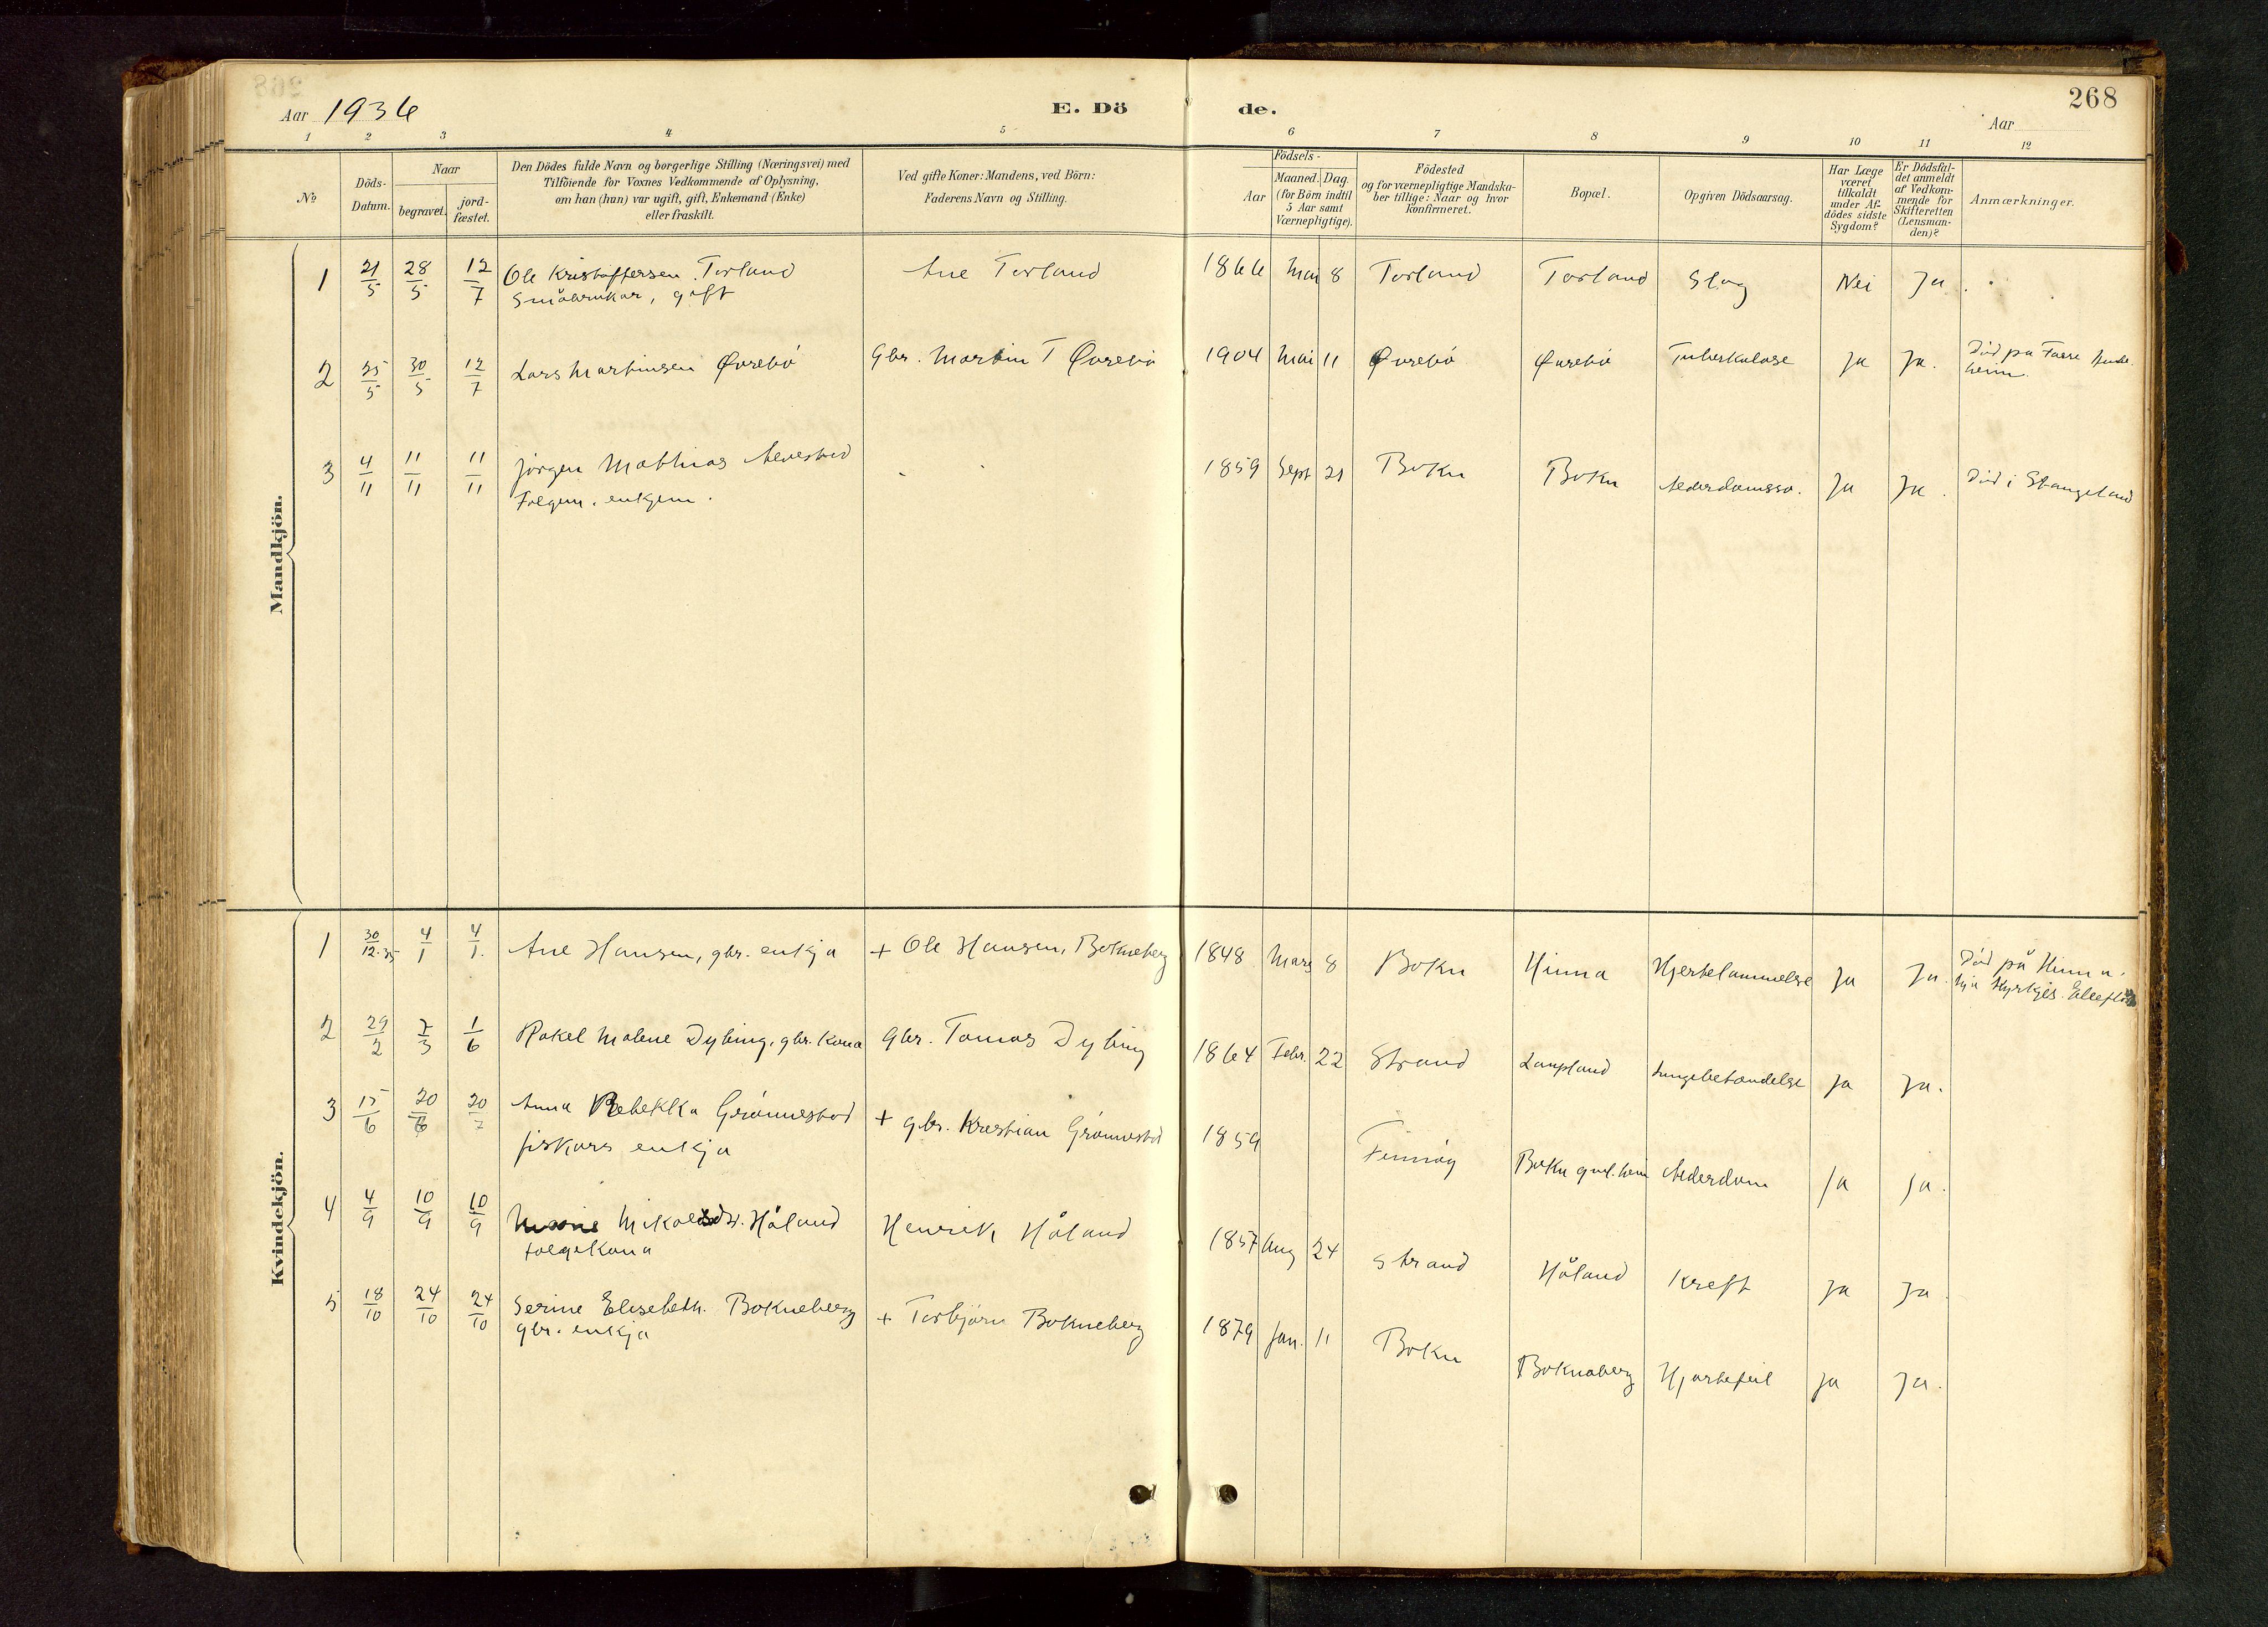 268
Aar 1936
E. Dö de.
Aar
1 2 3 4 5 6 7 8 9 10 11 12
No
Döds-Datum.
Naar
begravet.
jord-fæstet.
Den Dödes fulde Navn og borgerlige Stilling (Næringsvei) med
Tilföiende for Voxnes Vedkommende af Oplysning,
om han (hun) var ugift, gift, Enkemand (Enke)
eller fraskilt.
Ved gifte Koner: Mandens, ved Börn:
Faderens Navn og Stilling.
Födsels-
Aar
Maaned. Dag.
(for Börn indtil
5 Aar samt
Værnepligtige).
Födested
og for værnepligtige Mandska-
ber tillige: Naar og hvor
konfirmeret.
Bopæl.
Opgiven Dödsaarsag.
Har Læge
været
tilkaldt
under Af-
dödes sidste
Sygdom?
Er Dödsfal-
det anmeldt
af Vedkom-
mende for
Skifteretten
(Lensman-
den)?
Anmærkninger.
Mandkjön.
1 21/5 28/5 12/7 Ole Kristoffersen Torland Ane Torland 1866 Mai 8 Torland Torland Slag Nei Ja.
Småbrukar, gift
2 25/5 30/5 12/7 Lars Martinsen Øvrebö gbr. Martin T Øvrebö 1904 Mai 11 Øvrebö Øvrebö Tuberkulose Ja Ja. Död på
heim.
3 4/11 11/11 11/11 Jörgen Mathias - 1859 Sept 21 Bokn Bokn Ja Ja. Död i Stangeland
Folgem. enkjem.
Kvindekjön.
1 30/12.35 4/1 4/1. Ane Hansen, gbr. enkja + Ole Hansen, Bokneberg 1848 Mars 8 Bokn Hinna Hjertelammelse Ja Ja. Död på Hinna
2 29/2 7/3 1/6 Rakel Malene Dybing, gbr. kona gbr. Tomas Dybing 1864 Febr. 22 Strand Laupland Lungebetendelse Ja Ja.
3 15/6 20/6 20/7 Anna Rebekka Grönnestad + gbr. Kristian Grönnestad 1859 Finnöy Bokn gml.heim Alderdom Ja Ja.
fiskars enkja
4 4/9 10/9 10/9 Håland Henrik Håland 1857 Aug 24 Strand Håland Kreft Ja Ja.
folgekona
5 18/10 24/10 24/10 Serine Elisebeth. Bokneberg + Torbjörn Bokneberg 1879 Jan. 11 Bokn Boknaberg Hjartefeil Ja Ja.
gbr. enkja